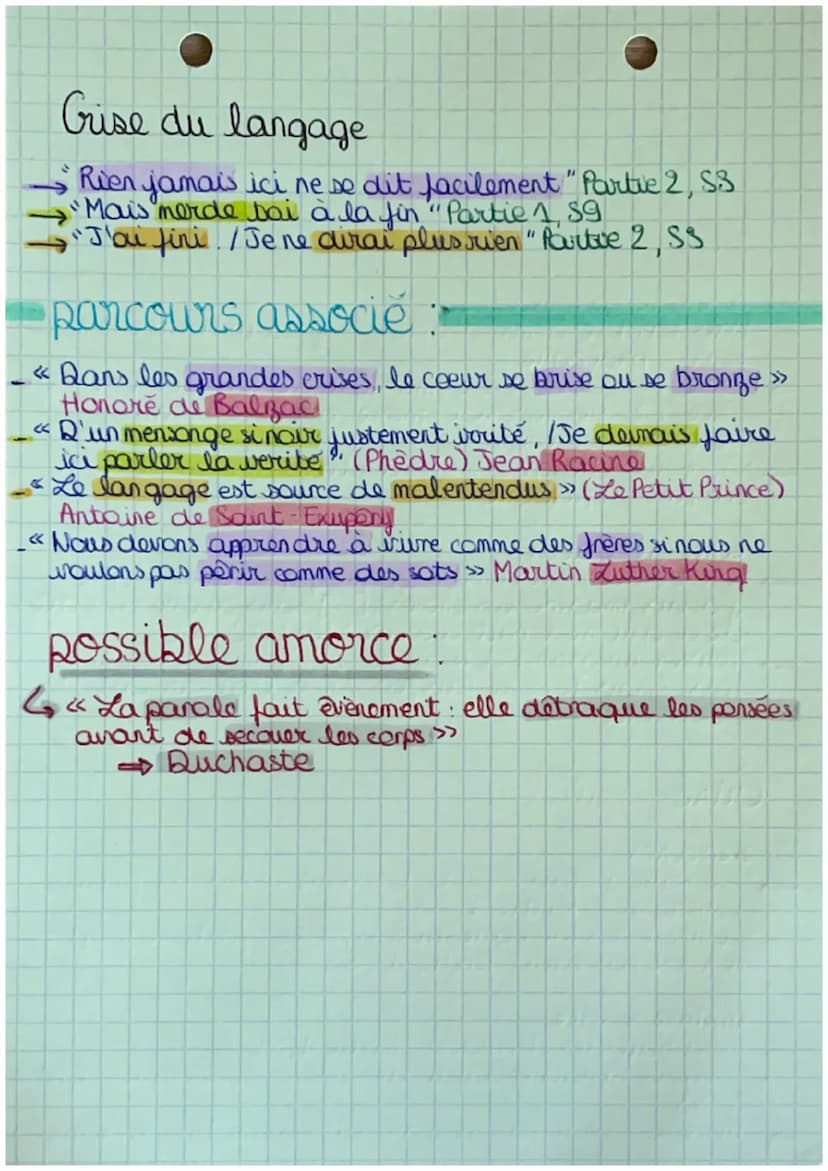 Crise du langage
→ "Rien jamais ici ne se dit facilement" Partie 2, S3
→ "Mais merde toi à la fin" Partie 1, S9
→ "J'ai fini. / Je ne dirai plus rien" Partie 2, S3
parcours associé :
- « Dans les grandes crises, le coeur se brise ou se bronze »
Honoré de Balzac
- « D'un mensonge si noir justement irrité, / Je devrais faire
ici parler la verité", (Phèdre) Jean Racine
- « Le langage est source de malentendus » (Le Petit Prince)
Antoine de Saint-Exupéry
- « Nous devons apprendre à vivre comme des frères si nous ne
voulons pas périr comme des sots » Martin Luther King
possible amorce :
↳ « La parole fait évènement : elle détraque les pensées
avant de secouer les corps »
⇒ Duchaste